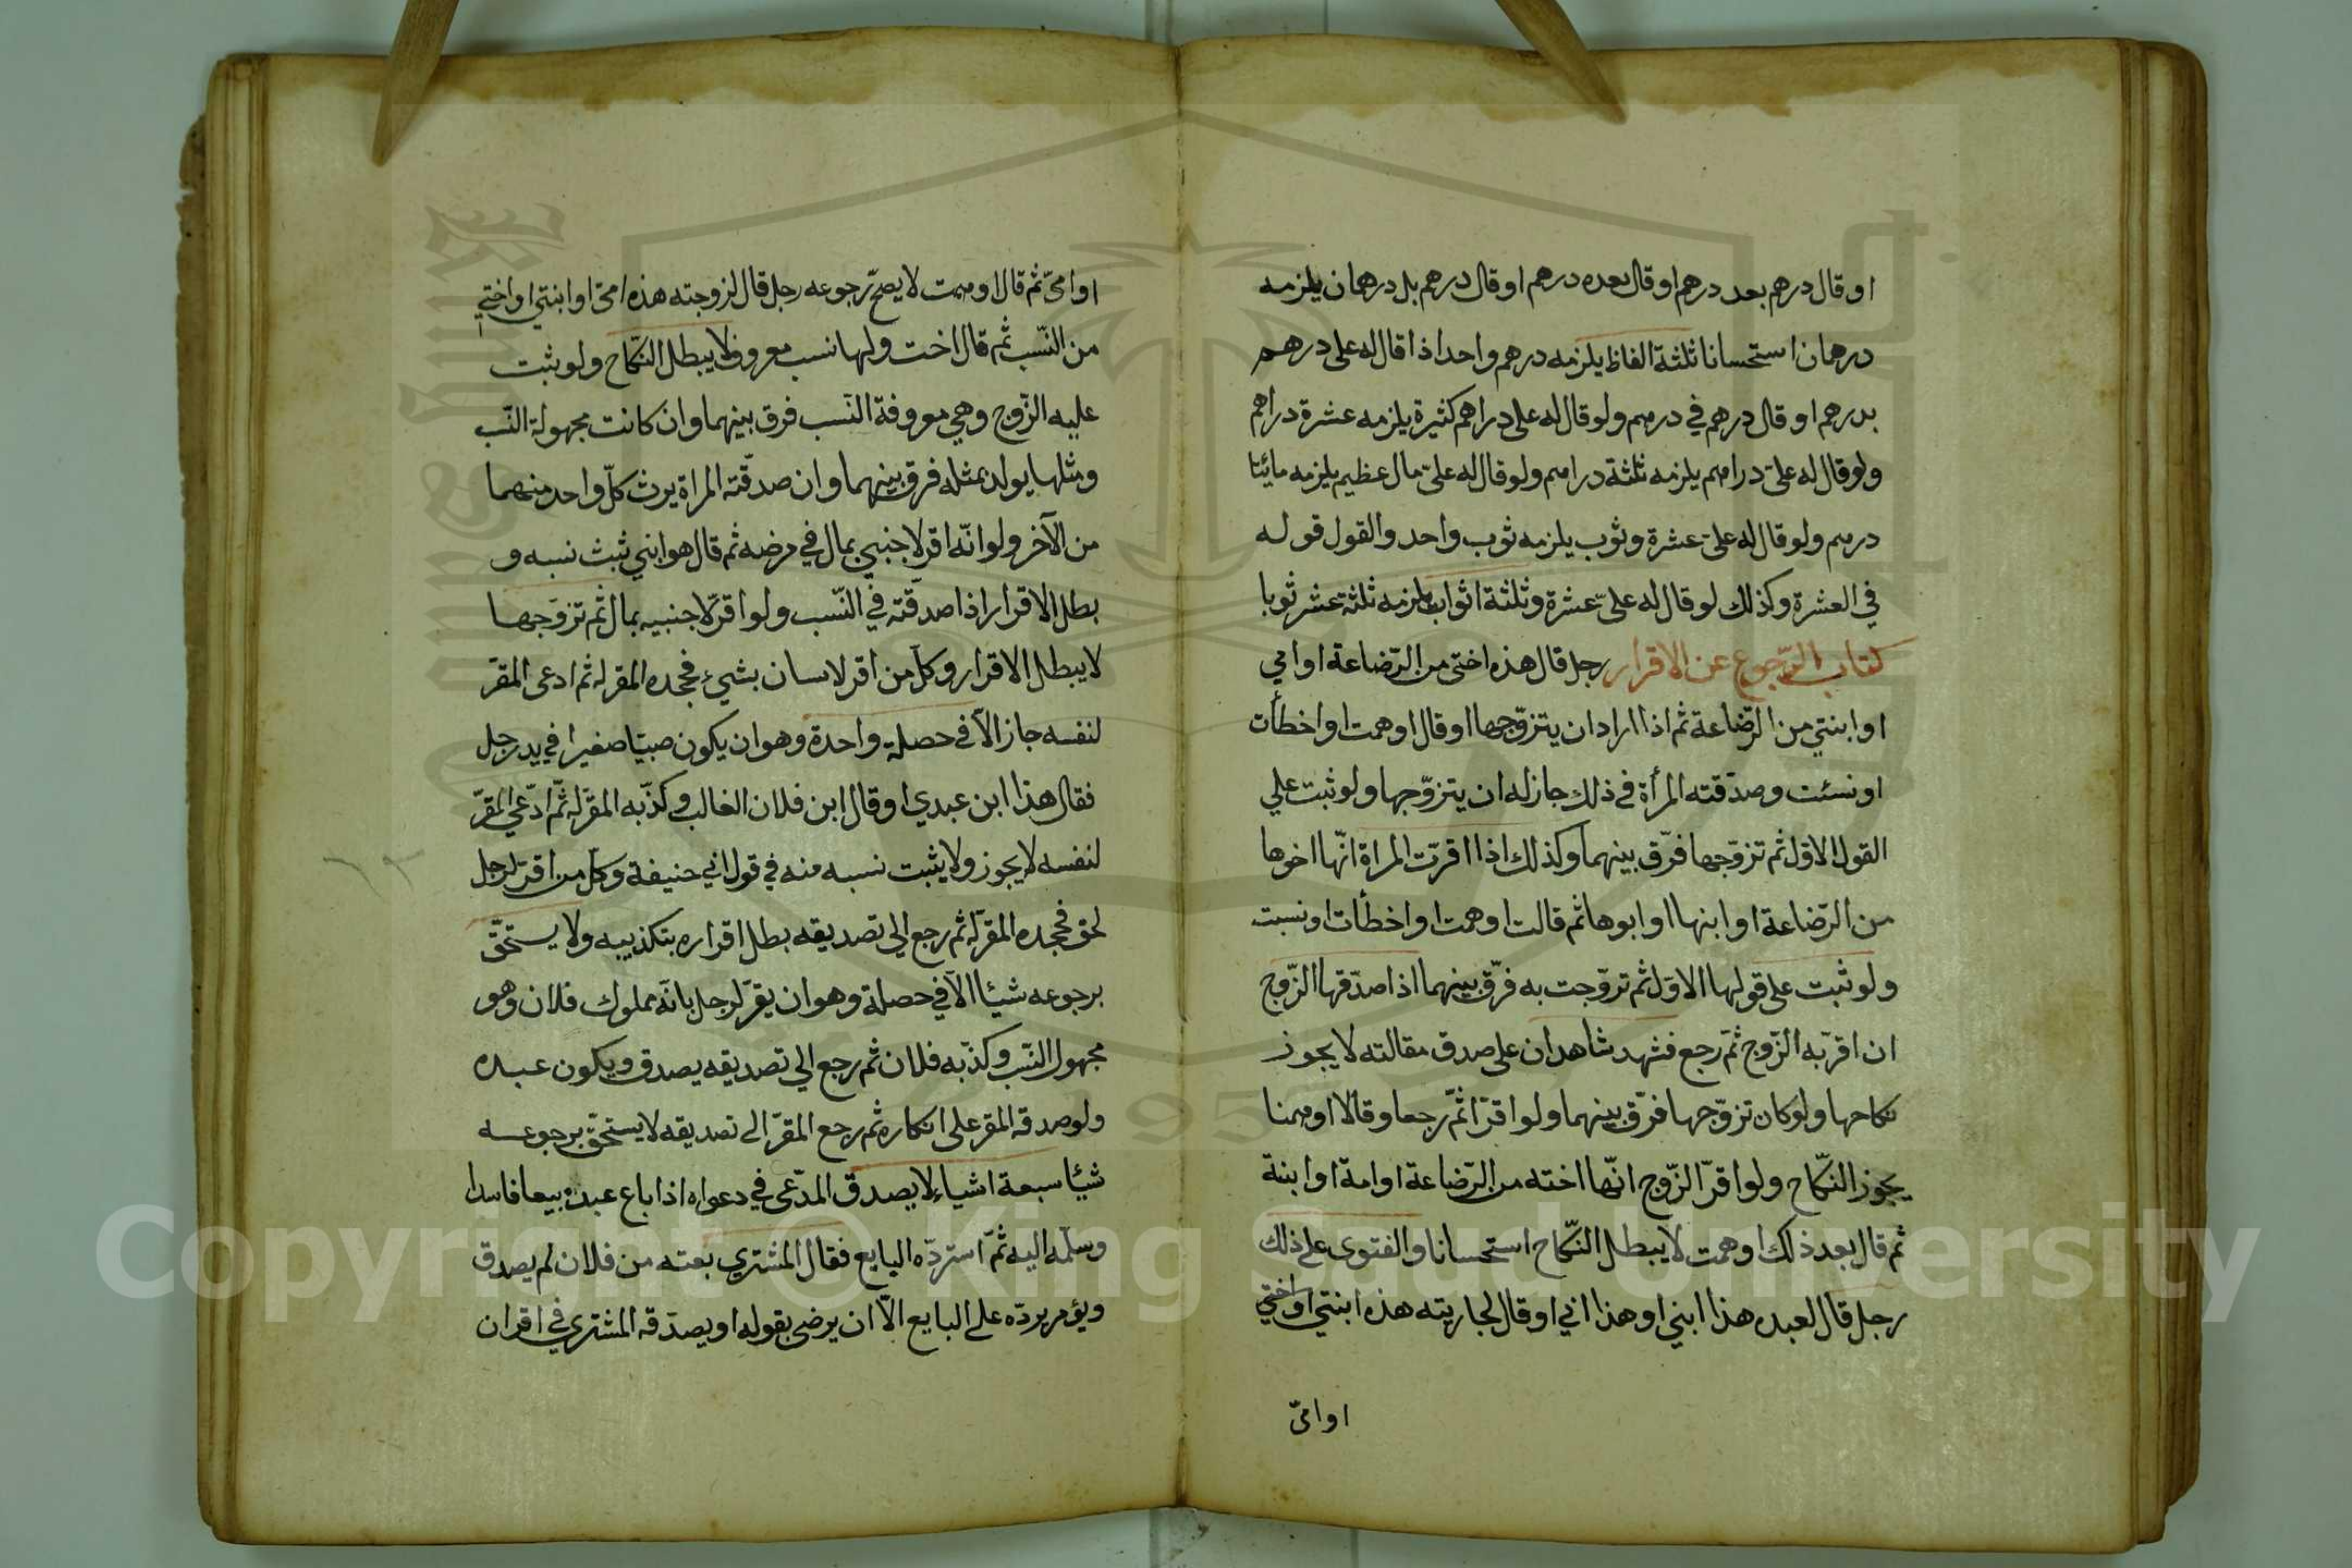 او قال درهم بعد درهم او قال بعده درهم او قال درهم بل درهمان يلزمه
درهمان استحسانا ثلثة الفاظ يلزمه درهم واحد اذا قال له على درهم
بدرهم او قال درهم في درهم ولو قال له على دراهم كثيرة يلزمه عشرة دراهم
ولو قال له علىّ دراهم يلزمه ثلثة دراهم ولو قال له علىّ مال عظيم يلزمه مائتا
درهم ولو قال له علىّ عشرة وثوب يلزمه ثوب واحد والقول قوله
في العشرة وكذلك لو قال له علىّ عشرة وثلثة اثواب يلزمه ثلثة عشر ثوبا
كتاب الرّجوع عن الاقرار رجل قال هذه اختى من الرّضاعة او امي
او ابنتي من الرّضاعة ثم اذا اراد ان يتزوّجها او قال اوهمت او اخطأت
او نسئت وصدّقته المرأة فى ذلك جاز له ان يتزوّجها ولو ثبت علي
القول الاوّل ثم تزوّجها فرّق بينهما وكذلك اذا اقرّت المراة انّها اخوها
من الرّضاعة او ابنها او ابوها ثم قالت اوهمت او اخطأت او نسبت
ولو ثبت على قولها الاوّل ثم تزوّجت به فرّق بينهما اذا صدّقها الزّوج
ان اقرّ به الزّوج ثمّ رجع فشهد شاهدان على صدق مقالته لا يجوز
نكاحها ولو كان تزوّجها فرّق بينهما ولو اقرّا ثمّ رجعا وقالا اوهمنا
يجوز النكّاح ولو اقرّ الزّوج انّها اخته من الرّضاعة او امة او ابنة
ثم قال بعد ذلك اوهمت لا يبطل النكّاح استحسانا والفتوى على ذلك
رجل قال لعبده هذا ابني او هذا ابي او قال لجاريته هذه ابنتي او اختي
او امىّ
او امىّ ثم قال اوهمت لا يصحّ رجوعه رجل قال لزوجته هذه امىّ او ابنتي او اختي
من النّسب ثم قال اخت ولها نسب معروف لا يبطل النكّاح ولو ثبت
عليه الزّوج وهي معروفة النّسب فرق بينهما وان كانت مجهولة النّسب
ومثلها يولد بمثله فرق بينهما وان صدّقته المراة يرث كلّ واحد منهما
من الآخر ولو انّه اقر لاجنبي بمال في مرضه ثم قال هو ابني ثبث نسبه و
بطل الاقرار اذا صدّقته في النّسب ولو اقرّ لاجنبيه بمال ثم تزوّجها
لا يبطل الاقرار وكلّ من اقر لانسان بشيء فجحده المقر له ثم ادعى المقرّ
لنفسه جاز الاّ في حصلة واحدة وهو ان يكون صبيّا صغيرا في يد رجل
فقال هذا ابن عبدي او قال ابن فلان الغالب وكذّبه المقرّ له ثمّ ادّعي المقرّ
لنفسه لا يجوز ولا يثبت نسبه منه في قول ابي حنيفة وكلّ من اقرّ لرجل
لحق فجحده المقرّ له ثم رجع الي تصديقه بطل اقراره بتكذيبه ولا يستحقّ
برجوعه شيئا الاّ في حصلة وهو ان يقرّ لرجل بانّه مملوك فلان وهو
مجهول النّسب وكذّبه فلان ثم رجع الي تصديقه يصدق ويكون عبده
ولو صدقه المقر على انكاره ثم رجع المقرّ الى تصديقه لا يستحقّ برجوعه
شيئا سبعة اشياء لا يصدق المدّعى في دعواه اذا باع عبده بيعا فاسدا
وسلّمه اليه ثمّ استردّه البايع فقال المشتري بعته من فلان لم يصدق
ويؤمر بردّه على البايع الاّ ان يرضى بقوله او يصدّقه المشتري في اقران
Copyright © King Saud University